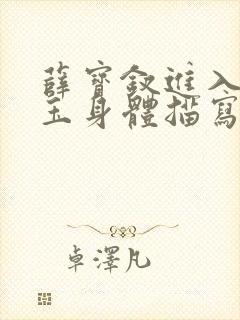 薛寶釵進入
玉身體描寫
卓澤凡